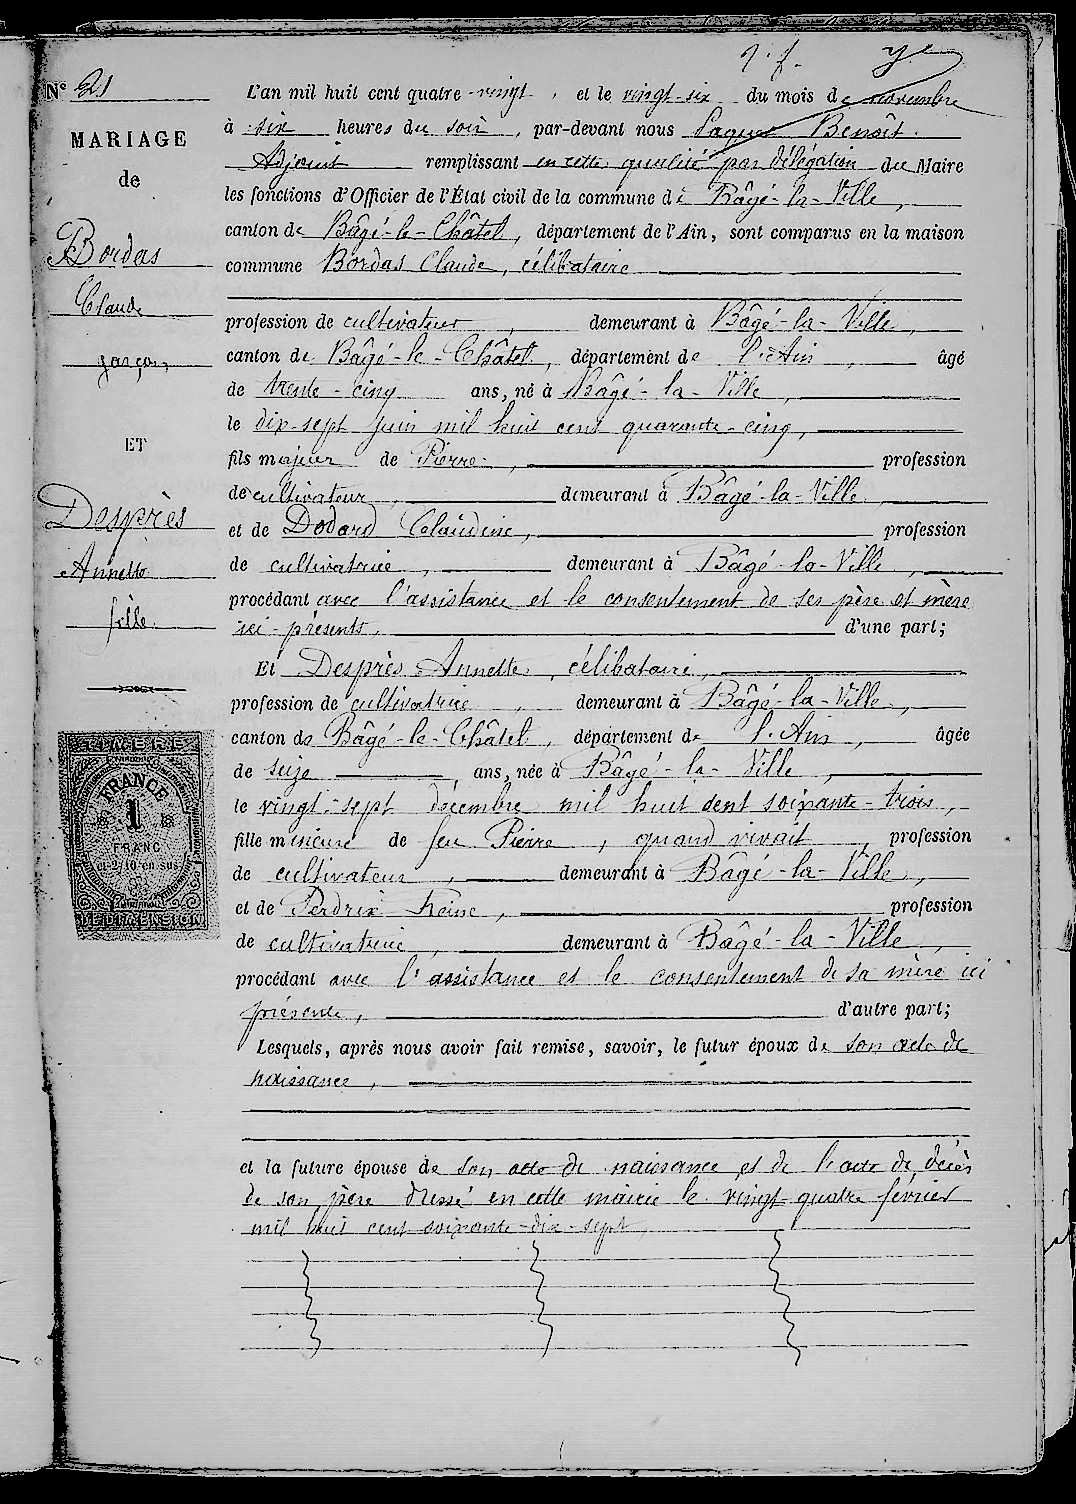 N° 21
MARIAGE
de
Bordas
Claude
garçon,
ET
Desprès
Annette
fille
TIMBRE
FRANCE
1
FRANC
et 2/10 en sus
DE DIMENSION
L'an mil huit cent quatre-vingt, et le vingt-six du mois de novembre
à six heures du soir, par-devant nous Benoît.
Adjoint remplissant en cette qualité par délégation du Maire
les fonctions d'Officier de l'État civil de la commune de Bâgé-la-Ville,
canton de Bâgé-le-Châtel, département de l'Ain, sont comparus en la maison
commune Bordas Claude, célibataire
profession de cultivateur, demeurant à Bâgé-la-Ville,
canton de Bâgé-le-Châtel, département de l'Ain, âgé
de trente-cinq ans, né à Bâgé-la-Ville,
le dix-sept juin mil huit cent quarante-cinq,
fils majeur de Pierre, profession
de cultivateur, demeurant à Bâgé-la-Ville,
et de Dodard Claudine, profession
de cultivatrice, demeurant à Bâgé-la-Ville,
procédant avec l'assistance et le consentement de ses père et mère
ici-présents, d'une part;
Et Desprès Annette, célibataire,
profession de cultivatrice, demeurant à Bâgé-la-Ville,
canton de Bâgé-le-Châtel, département de l'Ain, âgée
de seize, ans, née à Bâgé-la-Ville,
le vingt-sept décembre mil huit cent soixante-trois,
fille mineure de feu Pierre, quand vivait, profession
de cultivateur, demeurant à Bâgé-la-Ville,
et de Perdrix Reine, profession
de cultivatrice, demeurant à Bâgé-la-Ville,
procédant avec l'assistance et le consentement de sa mère ici
présente, d'autre part;
Lesquels, après nous avoir fait remise, savoir, le futur époux de son acte de
naissance,
et la future épouse de son acte de naissance et de l'acte de décès
de son père dressé en cette mairie le vingt-quatre février
mil huit cent soixante-dix-sept,